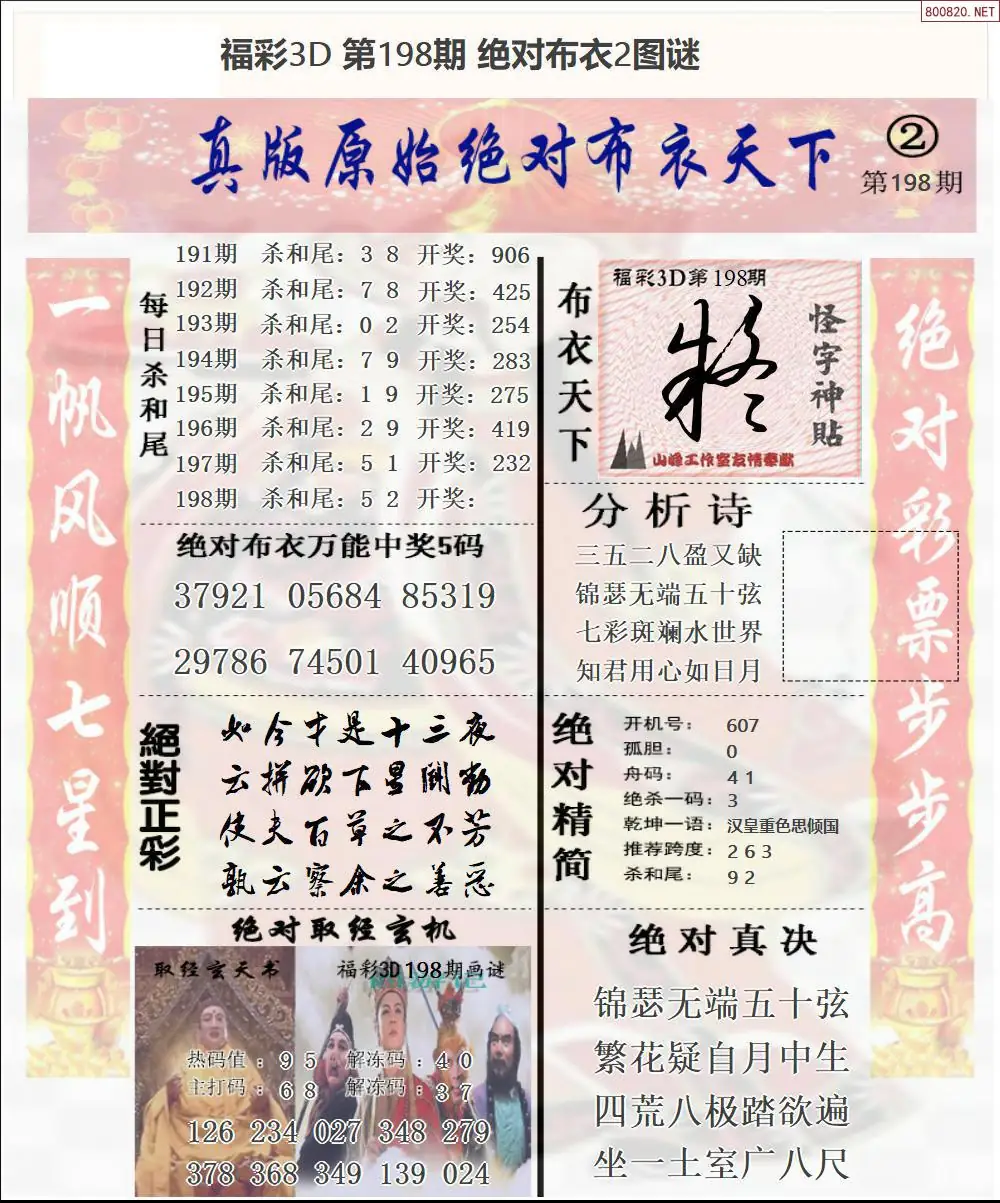 800820.NET
福彩3D 第198期 绝对布衣2图谜
真版原始绝对布衣天下
②
第198期
一帆风顺七星到
每日杀和尾
191期 杀和尾：3 8 开奖：906
192期 杀和尾：7 8 开奖：425
193期 杀和尾：0 2 开奖：254
194期 杀和尾：7 9 开奖：283
195期 杀和尾：1 9 开奖：275
196期 杀和尾：2 9 开奖：419
197期 杀和尾：5 1 开奖：232
198期 杀和尾：5 2 开奖：
绝对布衣万能中奖5码
37921 05684 85319
29786 74501 40965
絕對正彩
如今才是十三夜
云拼欲下星斗动
使夫百草之不芳
孰云察余之善恶
绝对取经玄机
取经玄天书
福彩3D198期画谜
热码值：9 5 解冻码：4 0
主打码：6 8 解冻码：3 7
126 234 027 348 279
378 368 349 139 024
布衣天下
福彩3D第198期
怪字神貼
山峰工作室友情奉献
分析诗
三五二八盈又缺
锦瑟无端五十弦
七彩斑斓水世界
知君用心如日月
绝对精简
开机号：607
孤胆：0
舟码：4 1
绝杀一码：3
乾坤一语：汉皇重色思倾国
推荐跨度：2 6 3
杀和尾：9 2
绝对真决
锦瑟无端五十弦
繁花疑自月中生
四荒八极踏欲遍
坐一土室广八尺
绝对彩票步步高